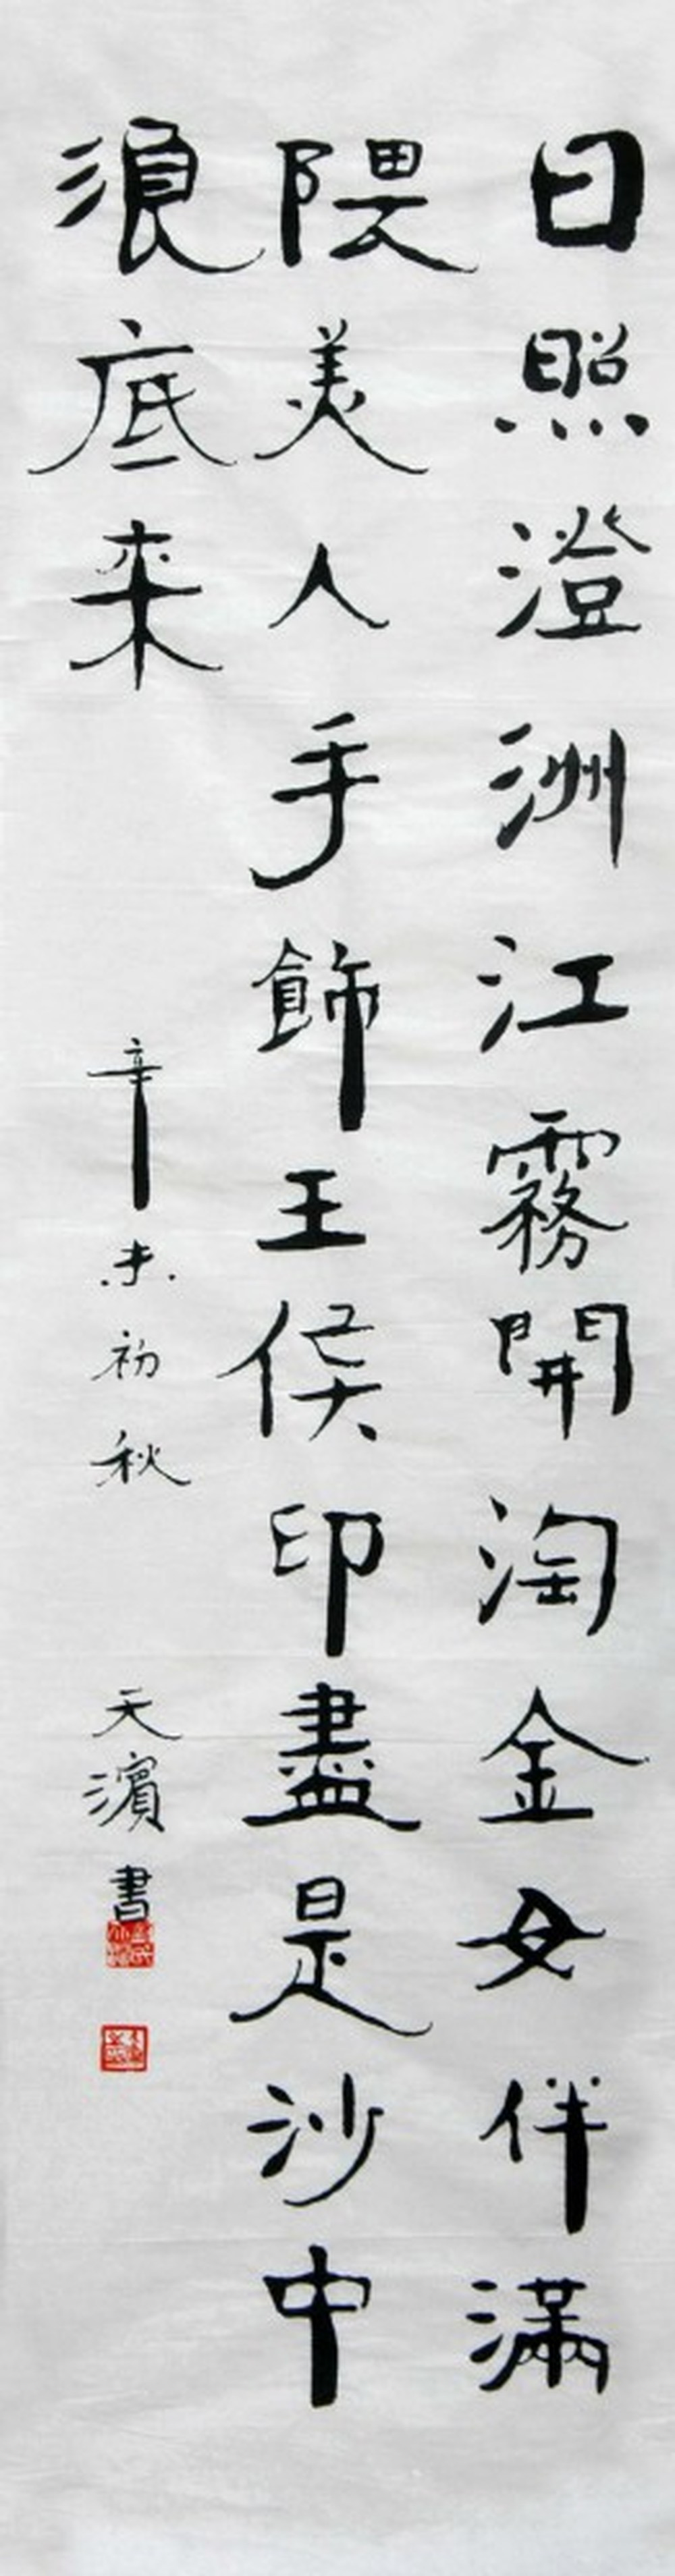 日照澄洲江霧開淘金女伴滿
隈美人手飾王侯印盡是沙中
浪底来
辛未初秋
天濱書